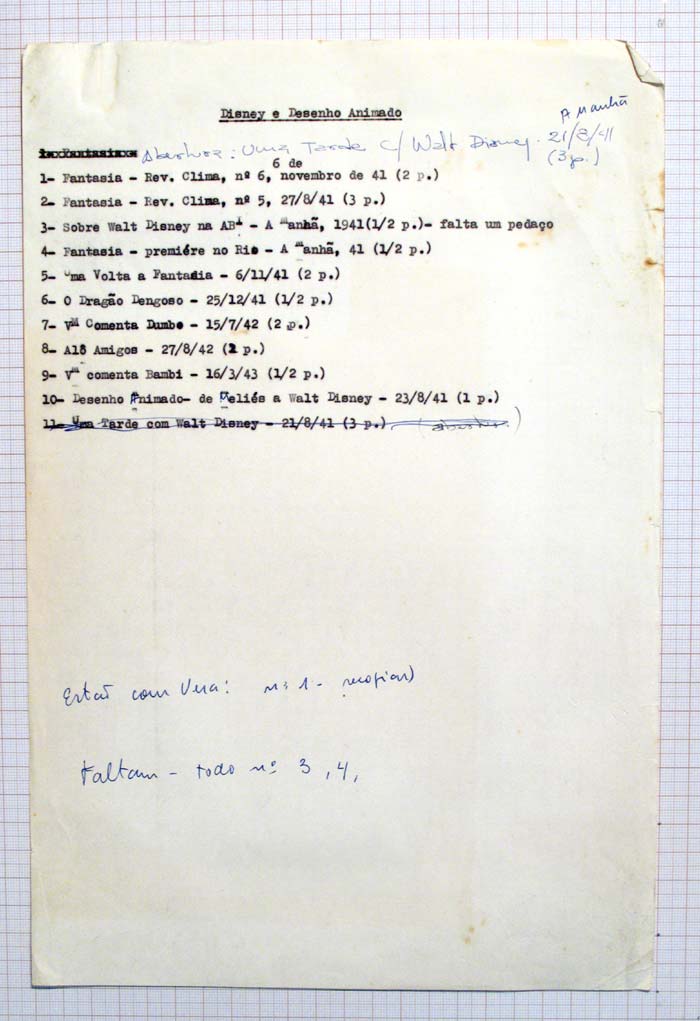 Disney e Desenho Animado
A Manhã
Abertura: Uma Tarde c/ Walt Disney. 21/8/41
(3 p.)
6 de
1- Fantasia - Rev. Clima, nº 6, novembro de 41 (2 p.)
2- Fantasia - Rev. Clima, nº 5, 27/8/41 (3 p.)
3- Sobre Walt Disney na ABI - A Manhã, 1941(1/2 p.)- falta um pedaço
4- Fantasia - premiére no Rio - A Manhã, 41 (1/2 p.)
5- Uma Volta a Fantasia - 6/11/41 (2 p.)
6- O Dragão Dengoso - 25/12/41 (1/2 p.)
7- VM Comenta Dumbo - 15/7/42 (2 p.)
8- Alô Amigos - 27/8/42 (2 p.)
9- VM comenta Bambi - 16/3/43 (1/2 p.)
10- Desenho Animado- de Meliés a Walt Disney - 23/8/41 (1 p.)
11- Uma Tarde com Walt Disney - 21/8/41 (3 p.) (abertura)
Estão com Vera: nº 1 - recopiar)
Faltam - todo nº 3, 4,